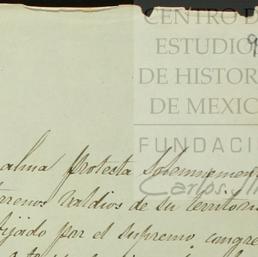 CENTRO D
ESTUDIO
DE HISTOR
DE MEXIC
FUNDACI
Carlos Sli
alma protesta solennemen
terrenos valdios de su territori
bijado por el supremo congre